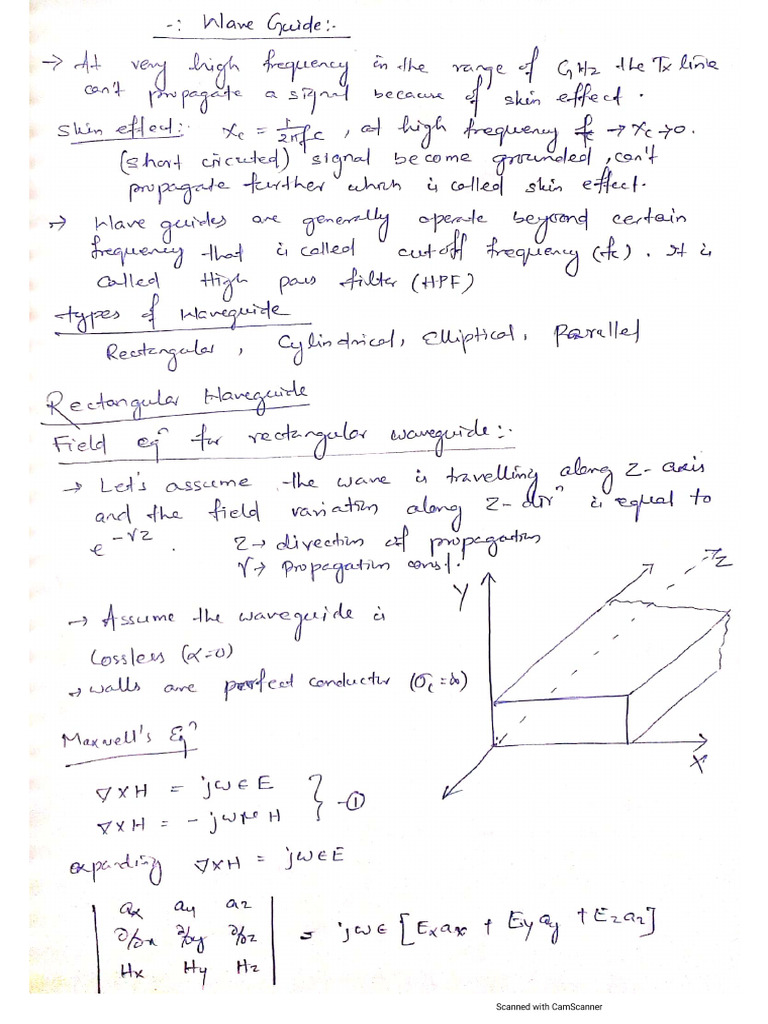 -: Wave Guide:-
→ At very high frequency in the range of GHz the Tx line
can't propagate a signal because of skin effect.
Skin effect:- Xc = 1/2πfc, at high frequency f → Xc→0.
(short circuted) signal become grounded, can't
propagate further which is called skin effect.
→ Wave guides are generally operate beyond certain
frequency that is called cutoff frequency (fc). It is
called High pass filter (HPF)
types of Waveguide
Rectangular, Cylindrical, Elliptical, Parallel
Rectangular Waveguide
Field eqⁿ for rectangular waveguide:-
→ Let's assume the wave is travelling along Z-axis
and the field variation along Z-dirⁿ is equal to
e^-γz. Z→ direction of propagation
γ→ propagation const.
→ Assume the waveguide is
lossless (α=0)
→ walls are perfect conductor (σc=∞)
Y
Z
X
Maxwell's Eqⁿ
∇×H = jωεE
∇×H = -jωμH } -①
expanding ∇×H = jωεE
| ax ay az |
| ∂/∂x ∂/∂y ∂/∂z | = jωε [Exax + Eyay + Ezaz]
| Hx Hy Hz |
Scanned with CamScanner